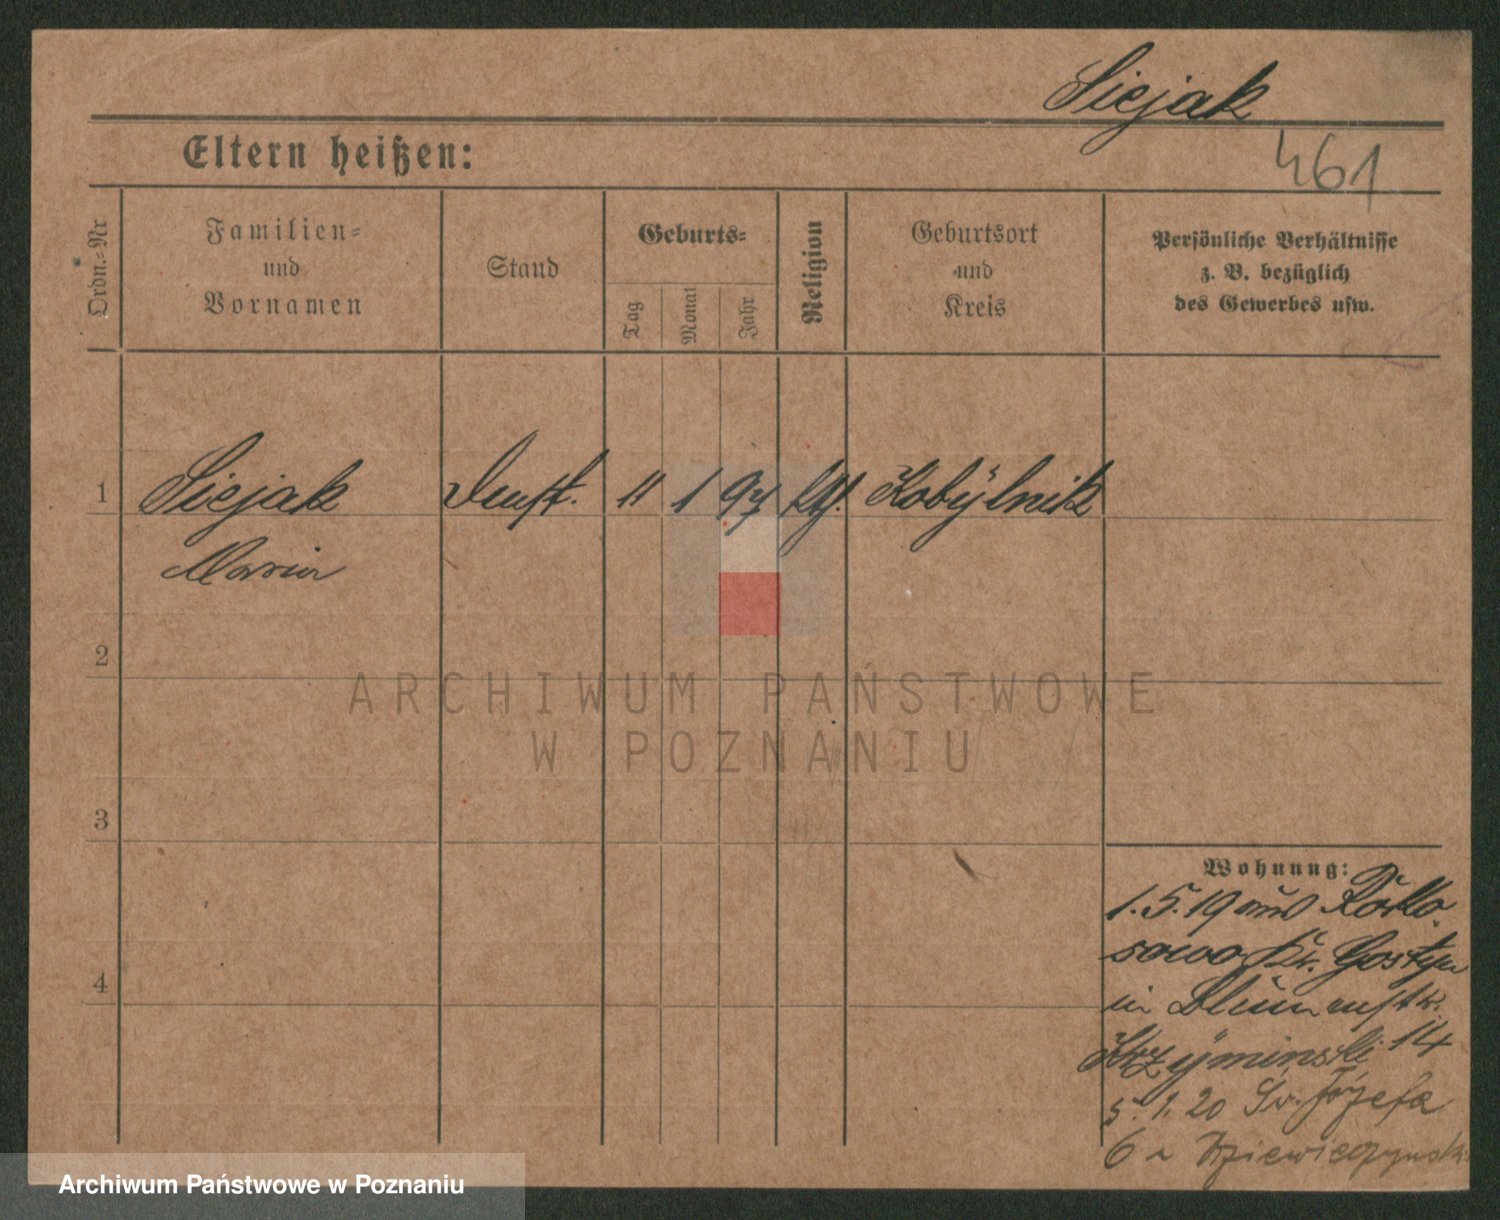 Siejak
461
Eltern heißen:
Ordn.-Nr
Familien-
und
Vornamen
Stand
Geburts-
Tag
Monat
Jahr
Religion
Geburtsort
und
Kreis
Persönliche Verhältnisse
z. B. bezüglich
des Gewerbes usw.
1 Siejak 11 1 97 Kobÿlnik
Maria
2
3
4
ARCHIWUM PAŃSTWOWE
W POZNANIU
Wohnung:
1.5.19 aus
sowo Kr. Gostyn
in Blumenstr.
Krzÿminski 14
5.1.20 Św. Józefa
6
Archiwum Państwowe w Poznaniu